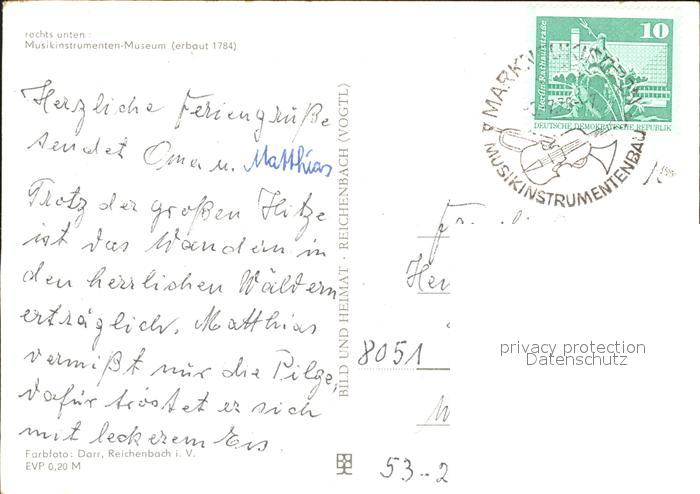 rechts unten :
Musikinstrumenten-Museum (erbaut 1784)
Herzliche Feriengrüße
sendet Oma u. Matthias
Trotz der großen Hitze
ist das Wandern in
den herrlichen Wäldern
erträglich. Matthias
vermißt nur die Pilze,
dafür tröstet er sich
mit leckerem Eis.
Farbfoto: Darr, Reichenbach i. V.
EVP 0,20 M
BILD UND HEIMAT · REICHENBACH (VOGTL)
10
Berlin·Rathausstraße
DEUTSCHE DEMOKRATISCHE REPUBLIK
MUSIKINSTRUMENTENBAU
8051
53-2
privacy protection
Datenschutz